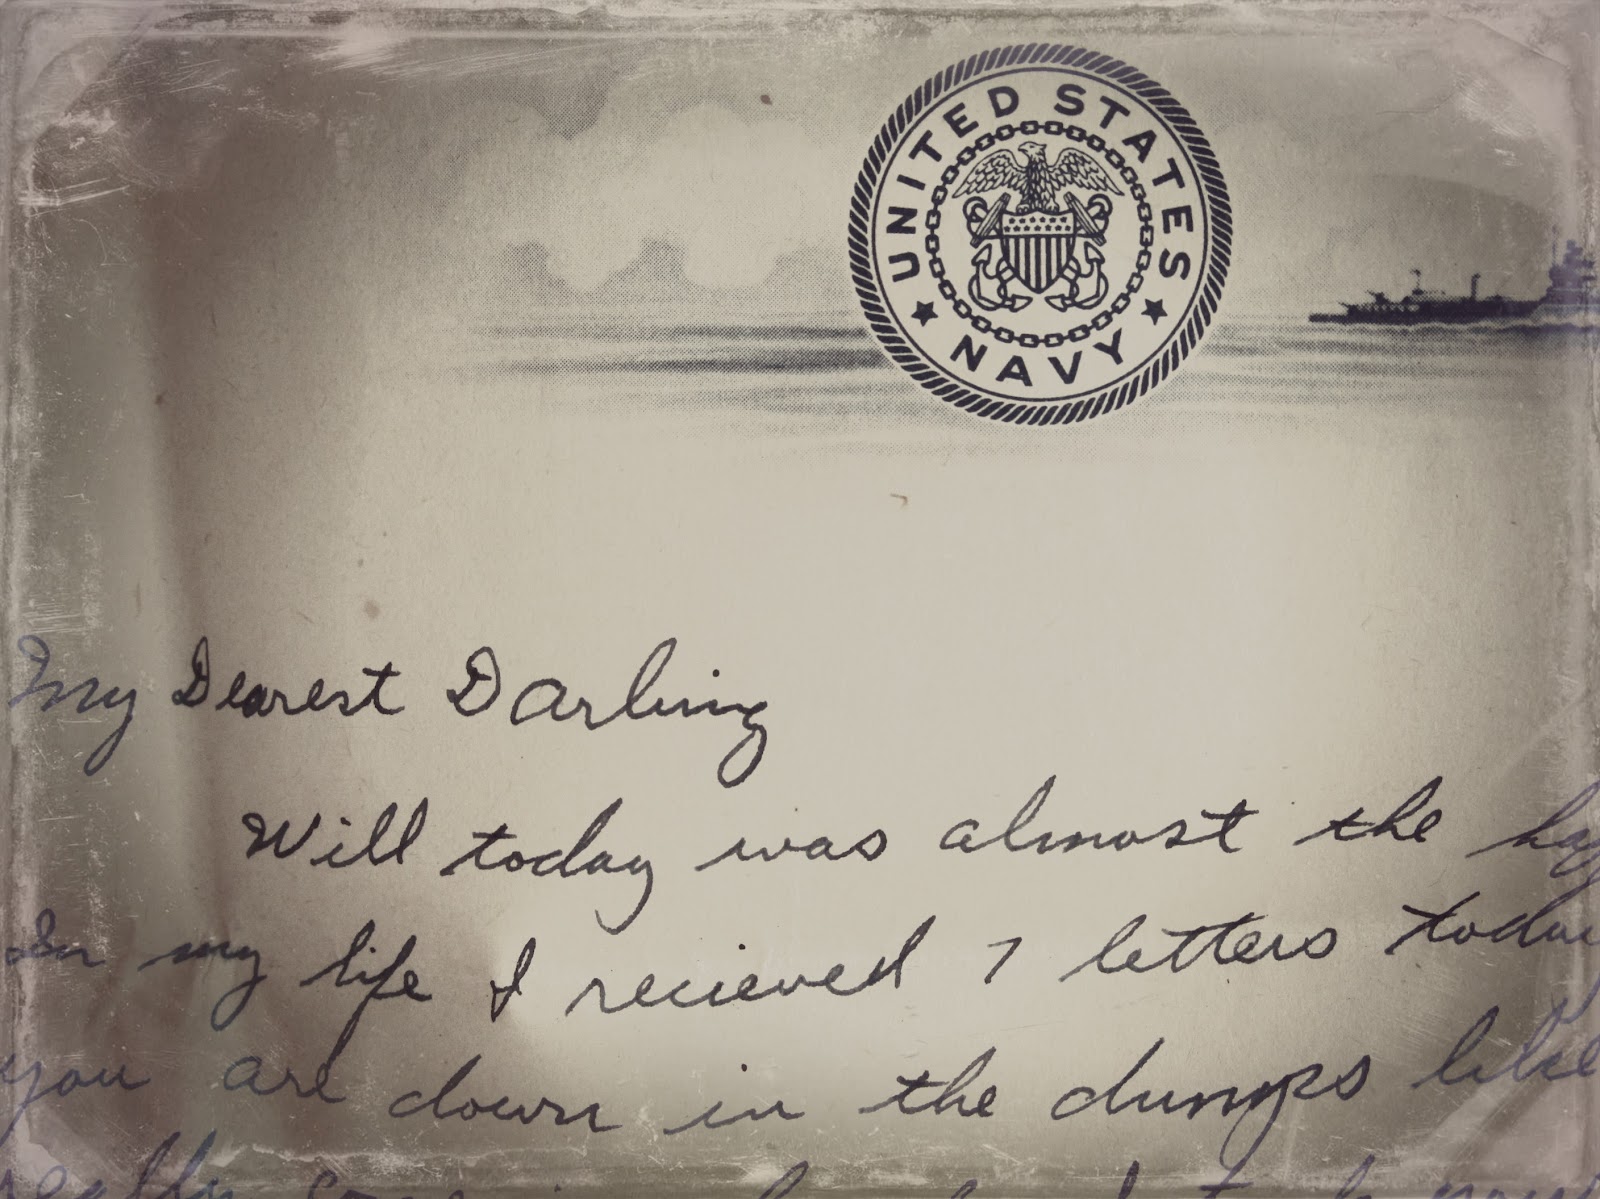 UNITED STATES
NAVY
My Dearest Darling
Will today was almost the
In my life I recieved 7 letters today
you are down in the dumps like
really